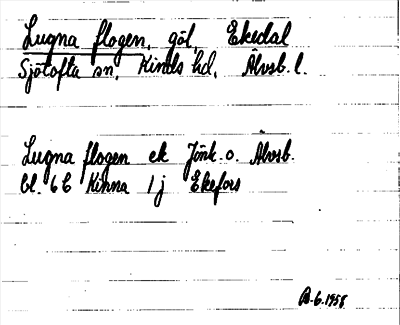 Lugna flogen, göl, Ekedal
Sjötofta sn, Kinds hd, Älvsb. l.
Lugna flogen ek Jönk. o. Älvsb.
bl. 6 C Kinna 1 j Ekefors
6.1958